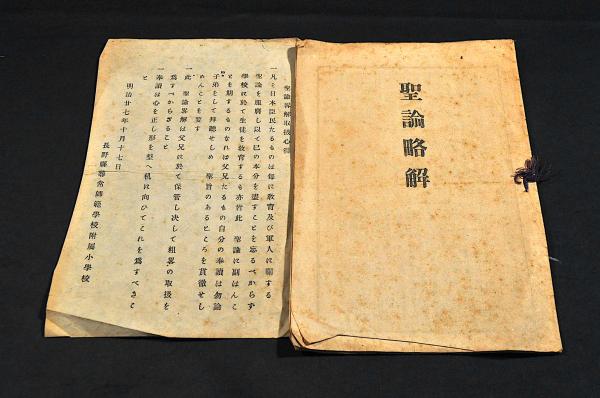 聖諭略解
聖諭畧解取扱心得
一凡そ日本臣民たるものは毎に教育及び軍人に關する
聖諭を服膺し以て己の本分を盡すことを忘るべからず
學校に於て生徒を教育するも亦皆此 聖諭に副はんこ
とを期するものなれば父兄たるもの自分の奉讀は勿論
子弟をして拜聽せしめ 聖旨のあるところを貫徹せし
めんことを要す
一此 聖諭畧解は父兄に於て保管し决して粗畧の取扱を
爲すべからざること
一奉讀は心を正し形を整へ机に向ひてこれを爲すべきこ
と
明治廿七年十月十七日
長野縣尋常師範學校附屬小學校